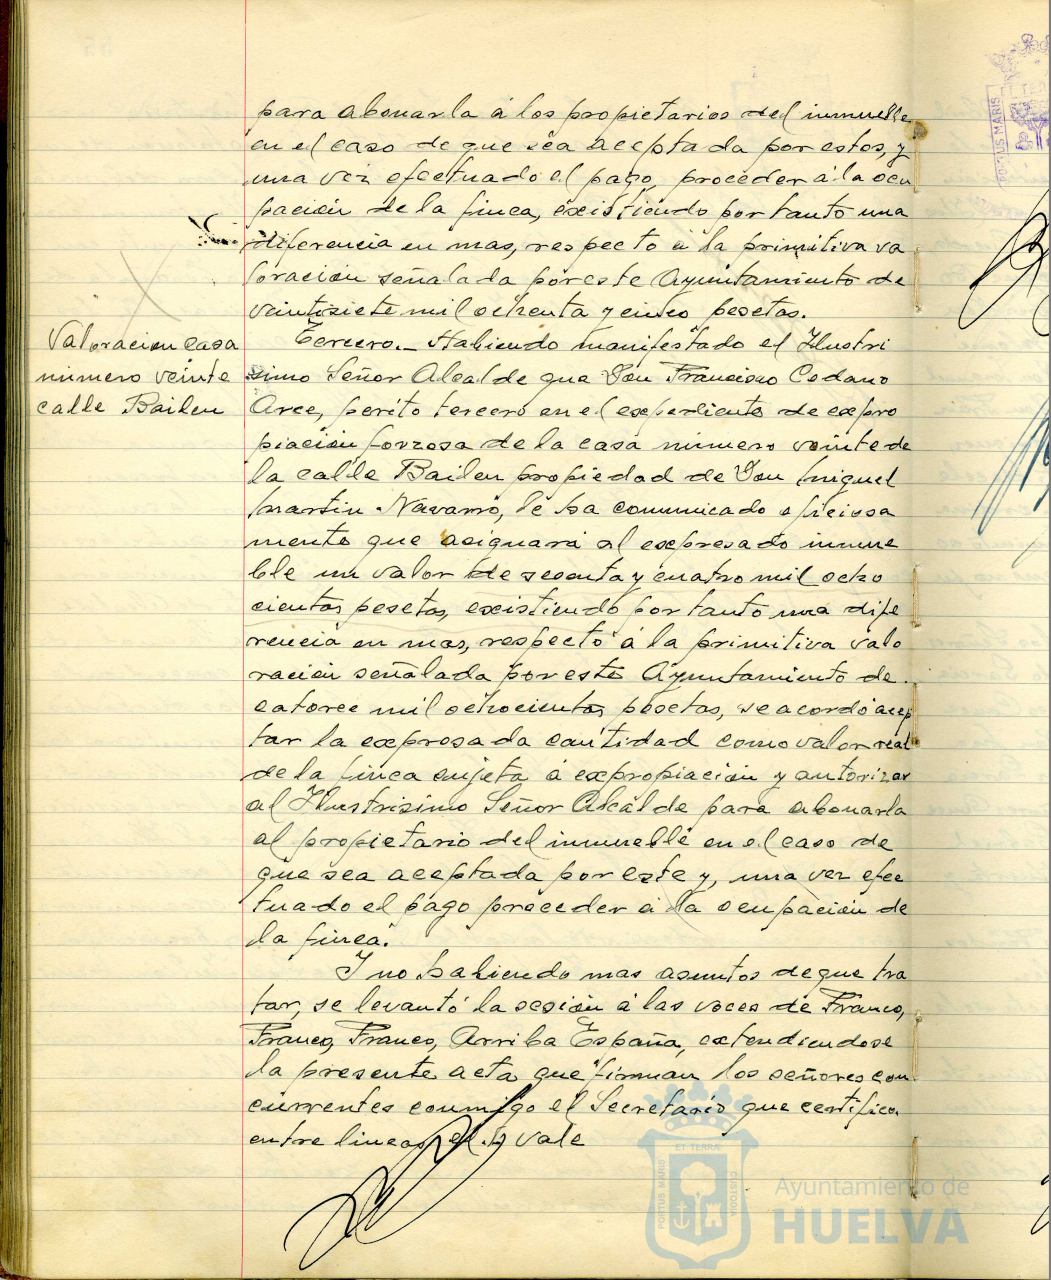 para abonarla á los propietarios del inmueble
en el caso de que séa aceptada por estos, y
una vez efectuado el pago, proceder á la ocu
pación de la finca, existiendo por tanto una
diferencia en mas, respecto á la primitiva va
loración señalada por este Ayuntamiento de
veintisiete mil ochenta y cinco pesetas.
Valoracion casa
número veinte
calle Bailen
Tercero.- Habiendo manifestado el Ilustri
simo Señor Alcalde que Don Francisco Cedano
Arce, perito tercero en el expediente de expro
piación forzosa de la casa número veinte de
la calle Bailen propiedad de Don Miguel
Martin Navarro, le ha comunicado oficiosa
mente que asignará al expresado inmue
ble un valor de sesenta y cuatro mil ocho
cientas pesetas, existiendo por tanto una dife
rencia en mas, respecto á la primitiva valo
ración señalada por este Ayuntamiento de
catorce mil ochocientas pesetas, se acordó acep
tar la expresada cantidad como valor real
de la finca sujeta á expropiación y autorizar
al Ilustrisimo Señor Alcalde para abonarla
al propietario del inmueble en el caso de
que sea aceptada por este y, una vez efec
tuado el pago proceder á la ocupación de
la finca.
Y no habiendo mas asuntos de que tra
tar, se levantó la sesión á las voces de Franco,
Franco, Franco, Arriba España, extendiendose
la presente acta que firman los señores con
currentes conmigo el Secretario que certifico.
entre lineas vale
ET TERRÆ
PORTUS MARIS
CUSTODIA
Ayuntamiento de
HUELVA
PORTUS MARIS